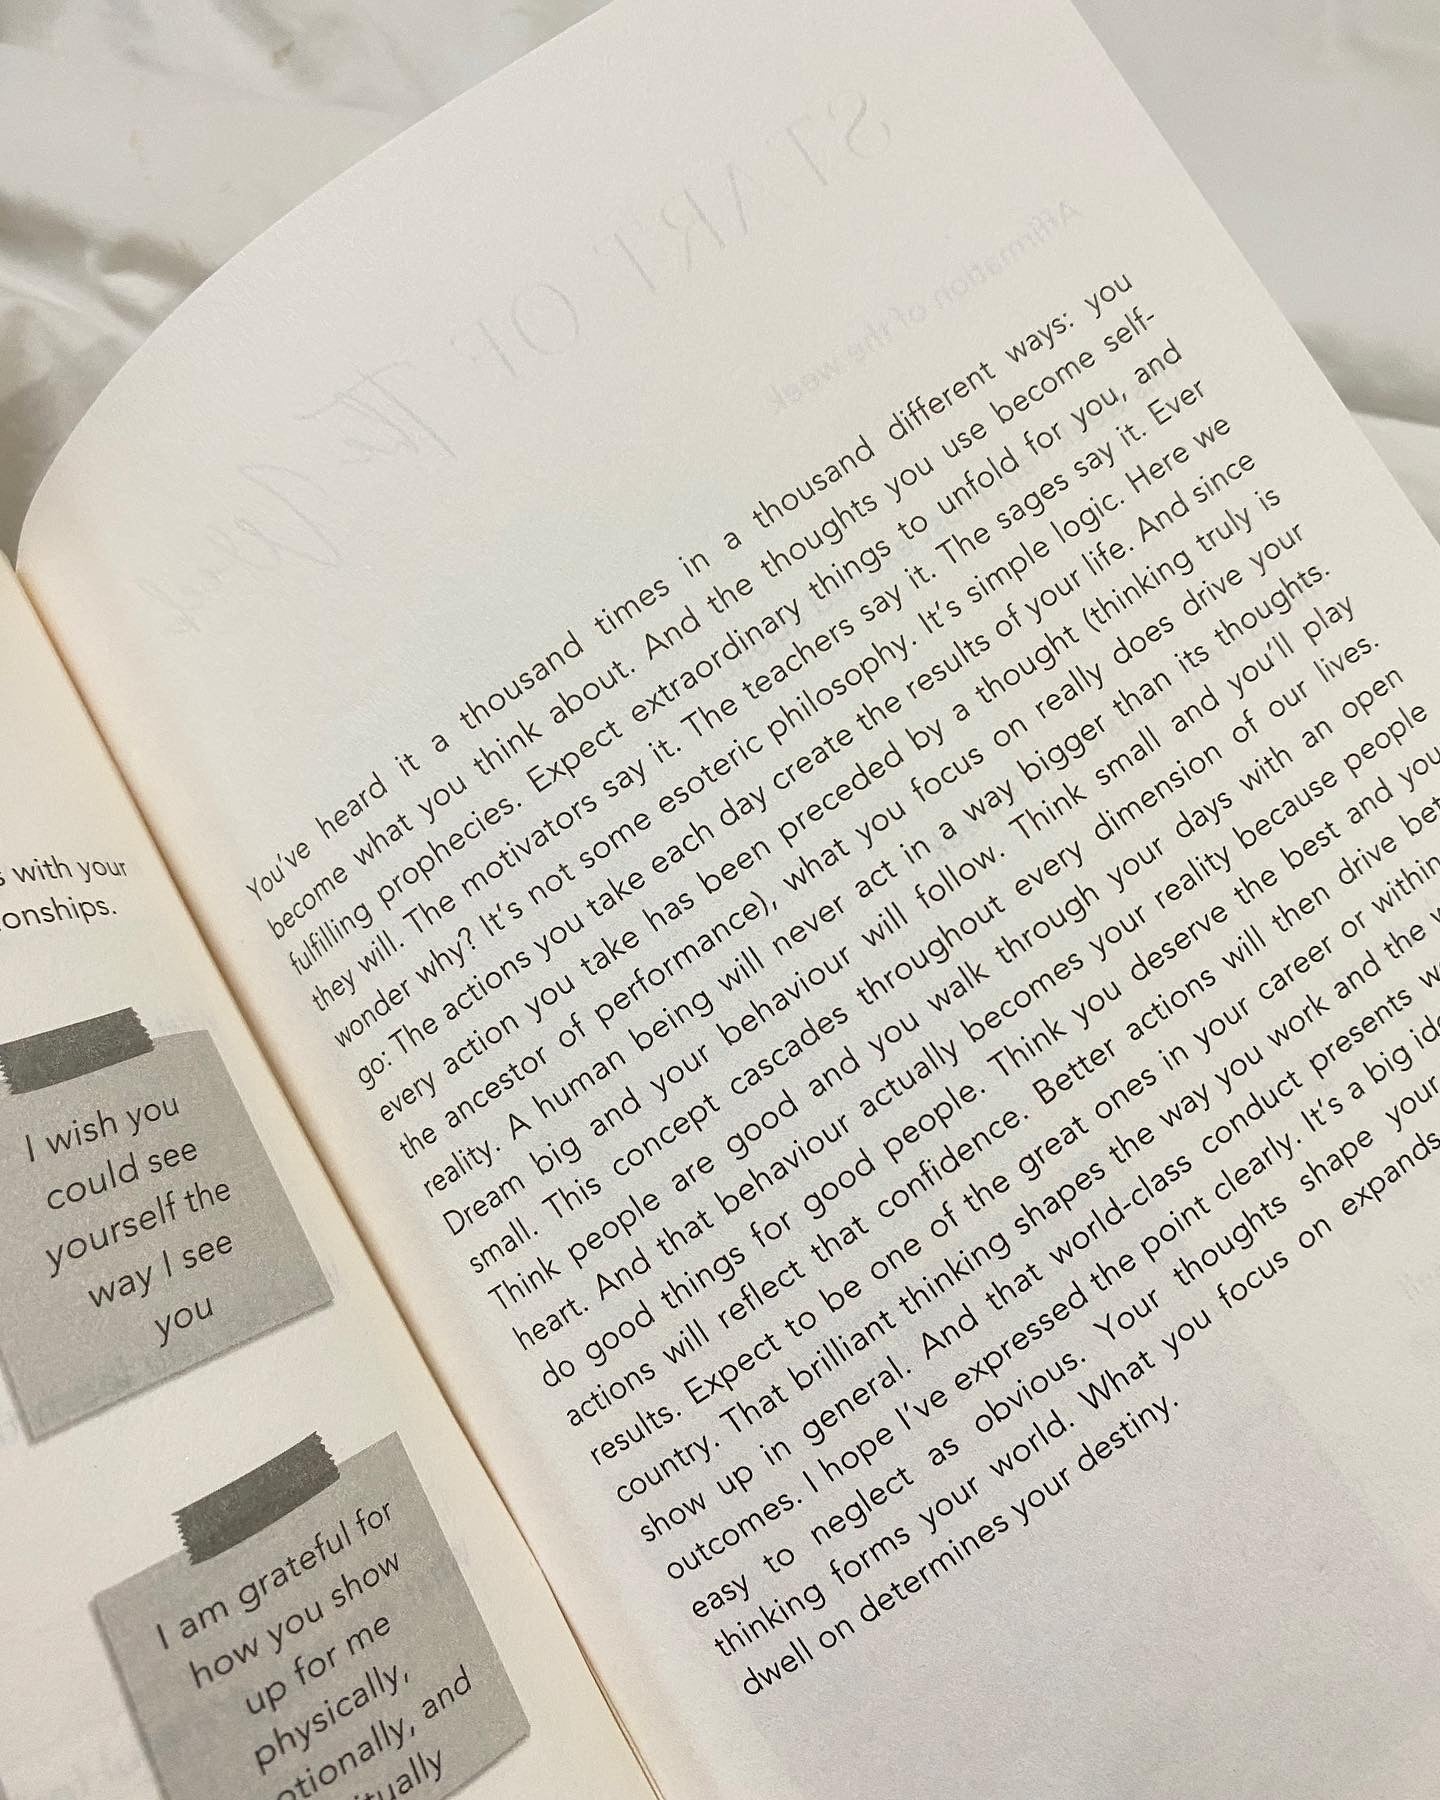 s with your
onships.
I wish you
could see
yourself the
way I see
you
I am grateful for
how you show
up for me
physically,
otionally, and
itually
START OF The
Affirmation of the week
You've heard it a thousand times in a thousand different ways: you
become what you think about. And the thoughts you use become self-
fulfilling prophecies. Expect extraordinary things to unfold for you, and
they will. The motivators say it. The teachers say it. The sages say it. Ever
wonder why? It's not some esoteric philosophy. It's simple logic. Here we
go: The actions you take each day create the results of your life. And since
every action you take has been preceded by a thought (thinking truly is
the ancestor of performance), what you focus on really does drive your
reality. A human being will never act in a way bigger than its thoughts.
Dream big and your behaviour will follow. Think small and you'll play
small. This concept cascades throughout every dimension of our lives.
Think people are good and you walk through your days with an open
heart. And that behaviour actually becomes your reality because people
do good things for good people. Think you deserve the best and you
actions will reflect that confidence. Better actions will then drive bet
results. Expect to be one of the great ones in your career or within
country. That brilliant thinking shapes the way you work and the w
show up in general. And that world-class conduct presents w
outcomes. I hope I've expressed the point clearly. It's a big ide
easy to neglect as obvious. Your thoughts shape your
thinking forms your world. What you focus on expands
dwell on determines your destiny.